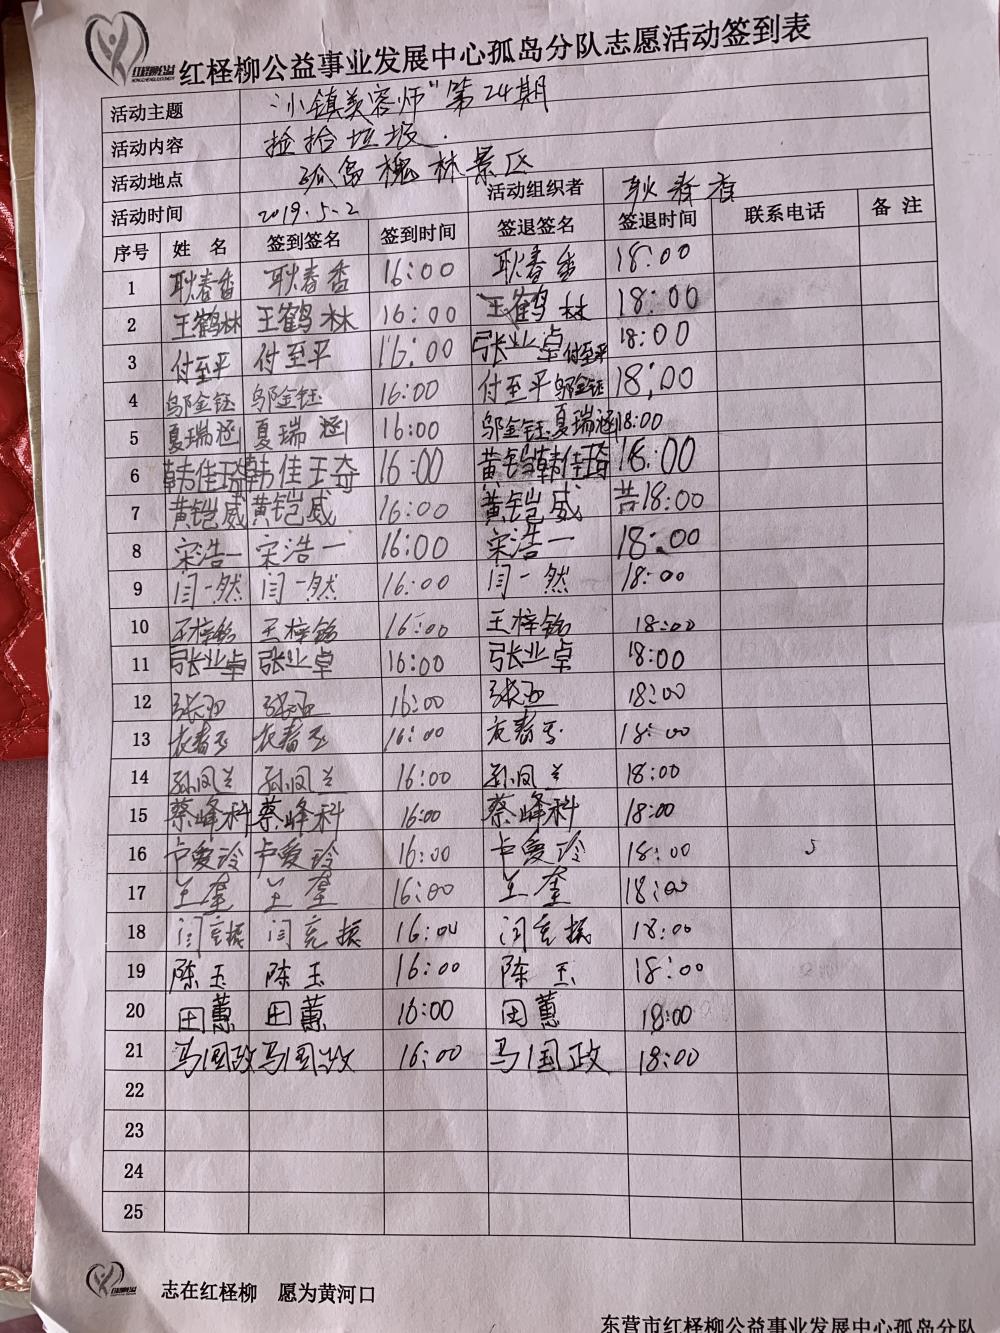 红柽柳公益事业发展中心孤岛分队志愿活动签到表
活动主题 "小镇美容师"第24期
活动内容 捡拾垃圾.
活动地点 孤岛槐林景区 活动组织者 耿春香
活动时间 2019.5.2
序号 姓名 签到签名 签到时间 签退签名 签退时间 联系电话 备注
1 耿春香 耿春香 16:00 耿春香 18:00
2 王鹤林 王鹤林 16:00 王鹤林 18:00
3 付至平 付至平 16:00 张业卓 付至平 18:00
4 邬金钰 邬金钰 16:00 付至平 邬金钰 18:00
5 夏瑞涵 夏瑞涵 16:00 邬金钰 夏瑞涵 18:00
6 韩佳琦 韩佳琦 16:00 黄铠 韩佳琦 18:00
7 黄铠威 黄铠威 16:00 黄铠威 18:00
8 宋浩一 宋浩一 16:00 宋浩一 18:00
9 闫一然 闫一然 16:00 闫一然 18:00
10 王梓铭 王梓铭 16:00 王梓铭 18:00
11 张业卓 张业卓 16:00 张业卓 18:00
12 16:00 18:00
13 16:00 18:00
14 孙凤兰 孙凤兰 16:00 孙凤兰 18:00
15 蔡峰科 蔡峰科 16:00 蔡峰科 18:00
16 卢爱玲 卢爱玲 16:00 卢爱玲 18:00
17 王奎 王奎 16:00 王奎 18:00
18 16:00 18:00
19 陈玉 陈玉 16:00 陈玉 18:00
20 田蕙 田蕙 16:00 田蕙 18:00
21 马国政 马国政 16:00 马国政 18:00
22
23
24
25
志在红柽柳 愿为黄河口
东营市红柽柳公益事业发展中心孤岛分队